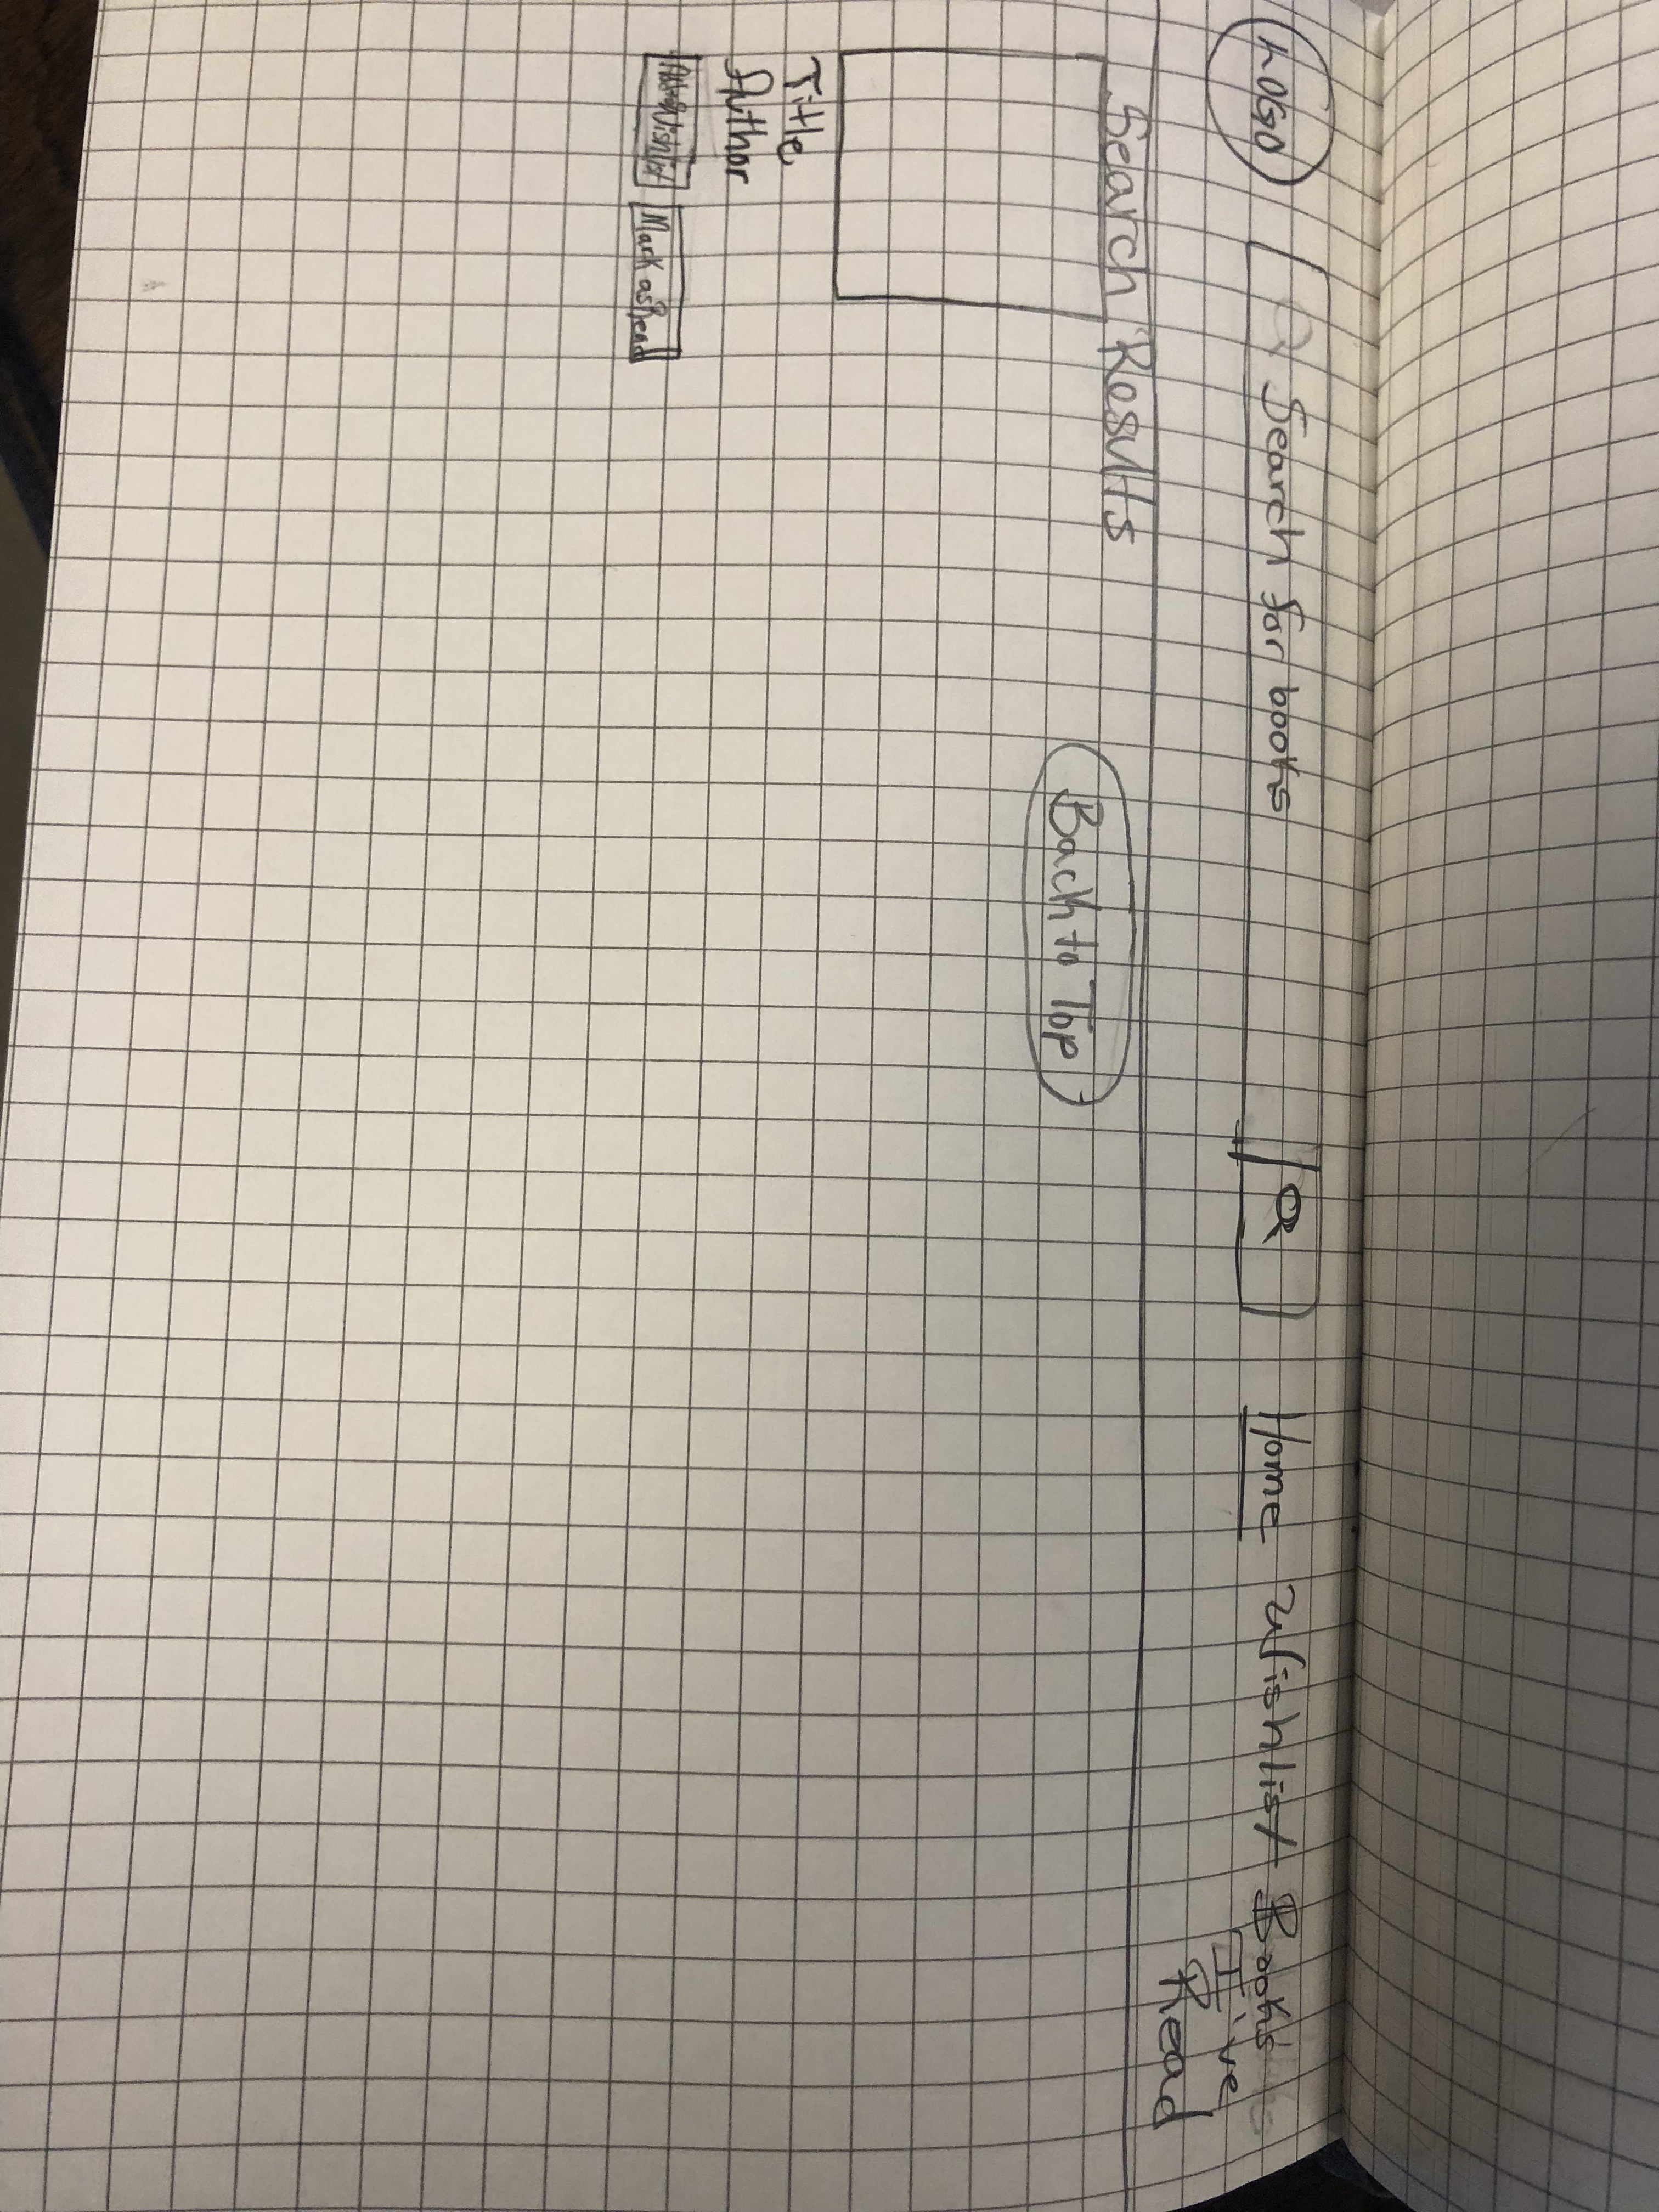 LOGO
Search for books
Home Wishlist Books
I've
Read
Back to Top
Search Results
Title
Author
Add to Wishlist Mark as Read